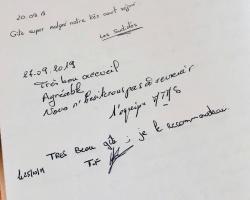 20.09.19
Gîte super malgré notre très court séjour
Les
27.09.2019
Très bon accueil
Agréable
Nous n'hésiterons pas à revenir
l'équipe ATAS
TRES Beau gîte ; je le recommande